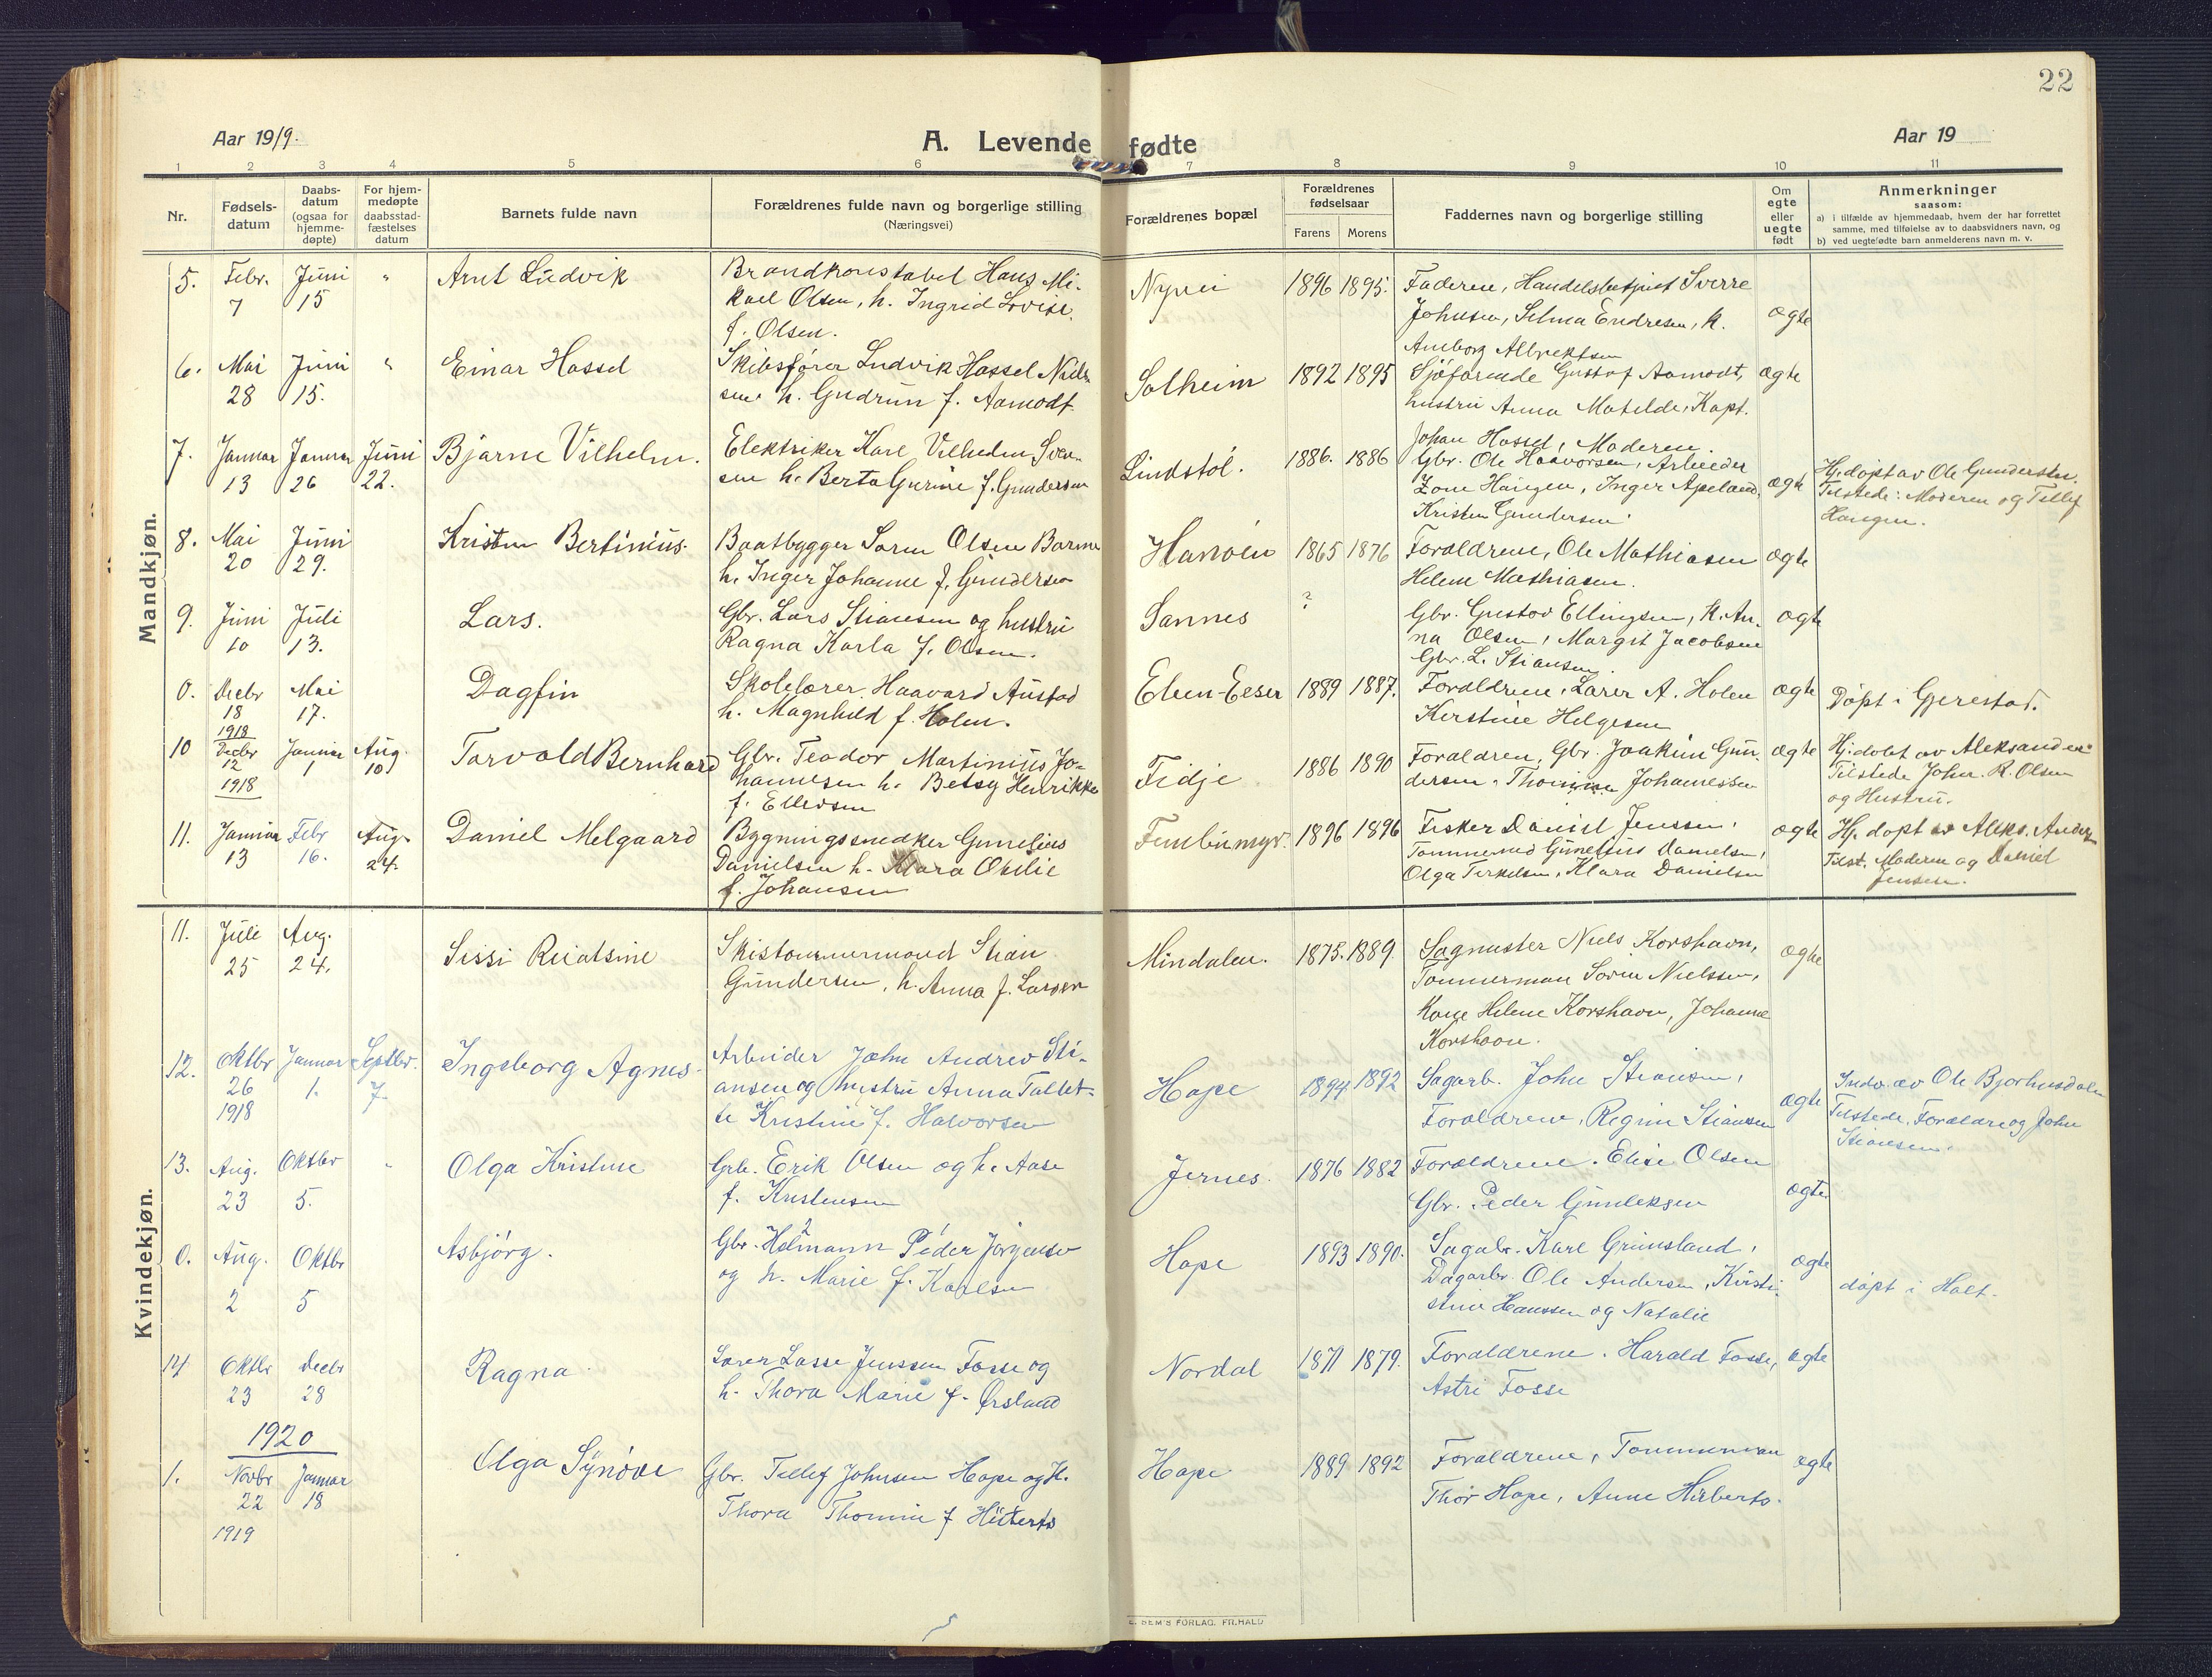 22
Aar 1919.
A. Levende fødte
Aar 19
1 2 3 4 5 6 7 8 9 10 11
Nr.
Fødsels-
datum
Daabs-
datum
(ogsaa for
hjemme-
døpte)
For hjem-
medøpte
daabsstad-
fæstelses
datum
Barnets fulde navn
Forældrenes fulde navn og borgerlige stilling
(Næringsvei)
Forældrenes bopæl
Forældrenes
fødselsaar
Farens Morens
Faddernes navn og borgerlige stilling
Om
egte
eller
uegte
født
Anmerkninger
saasom:
a) i tilfælde av hjemmedaab, hvem der har forrettet
samme, med tilføielse av to daabsvidners navn, og
b) ved uegtefødte barn anmelderens navn m. v.
Mandkjøn.
5. Febr. 7 Juni 15 "
Arnt Ludvik
Brandkonstabel Hans Mi-
kael Olsen, h. Ingrid Lovise
f. Olsen.
1896 1895.
Faderen, Handelsbetjent Sverre
Johnsen, Selma Endresen, k.
Albrektsen
ægte
6. Mai 28 Juni 15. "
Einar Hassel
Skibsfører Ludvik Hassel Niel-
sen h. Gudrun f. Aamodt.
Solheim
1892 1895
Sjøfarende Gustaf Aamodt,
hustru Anna Matilde, Kapt.
Johan Hassel, Moderen.
ægte
7. Januar 13 Januar 26 Juni 22.
Bjarne Vilhelm.
Elektriker Karl Vilhelm Sven-
sen h. Berta Gurine f. Gundersen
Lindstøl.
1886. 1886
Gbr. Ole Haavorsen, Arbeider
Haugen, Inger Apeland,
Kristen Gundersen
ægte
Hj.døpt av Ole Gundersen.
Tilstede: Moderen og Tellef
Haugen.
8. Mai 20 Juni 29.
Kristen Bertinius.
Baatbygger Søren Olsen
h. Inger Johanne f. Gundersen
1865 1876
Forældrene, Ole Mathiasen
Helene Mathiasen.
ægte
9. Juni 10 Juli 13.
Lars.
Gbr. Lars Stiansen og hustru
Ragna Karla f. Olsen.
Sannes
?
Gbr. Gustav Ellingsen, k. An-
na Olsen, Margit Jacobsen
Gbr. L. Stiansen.
ægte
0. Decbr 18 1918 Mai 17.
Dagfin
Skolelærer Haavard Austad
h. Magnhild f. Holen.
1889 1887.
Forældrene, Lærer A. Holen
Kerstine Helgesen
ægte
Døpt i Gjerestad.
10 Decbr 12 1918 Januar 1 Aug. 10
Torvald Bernhard
Gbr. Teodor Martinius Jo-
hannesen h. Betsy Henrikke
f. Ellefsen
Fidje
1886 1890
Forældren, Gbr. Joakim Gun-
dersen, Thomine Johannessen
ægte
Hj.døbt av Aleksander
Tilstede John. R. Olsen
og Hustru.
11. Januar 13 Febr 16. Aug. 24.
Daniel Melgaard
Bygningssnedker Gunelius
Danielsen h. Klara Otilie
f. Johansen
1896 1896
Fisker Daniel Jenssen,
Tømmermd Gunelius Danielsen,
Olga Terkelsen, Klara Danielsen
ægte
Hj. døpt av Aleks. Anders
Tilst. Moderen og Daniel
Jensen.
Kvindekjøn.
11. Juli 25 Aug. 24.
Sissi
Skibstømmermand Stian
Gundersen, h. Anna f. Larsen
Mindalen.
1875. 1889.
Sagmester Niels Korshavn,
Tømmerman Søren Nielssen,
Kone Helene Korshavn, Johanne
Korshavn.
ægte
12. Oktbr 26 1918 Januar 1. Septbr. 7
Ingeborg Agnes
Arbeider John Andrew Sti-
ansen og hustru Anna Tallet-
te Kristine f. Halvorsen
Hope
1894 1892
Sagarb. John Stiansen,
Forældrene, Regine Stiansen
ægte
av Ole Bjorhusdalen
Tilstede, Forældre og John
Stiansen.
13. Aug. 23 Oktbr 5. "
Olga Kristine
Gbr. Erik Olsen og h. Aase
f. Kristensen
Jernes.
1876 1882
Forældrene. Elise Olsen
Gbr. Peder Gunleksen
ægte
0. Aug. 2 Oktbr 5
Asbjørg.
Gbr. Halmann Peder Jørgensen
og h. Marie f. Karlsen
Hope
1893 1890.
Sagarb. Karl Grimsland,
Dagarbr. Ole Andersen, Kristi-
Hanssen og Natalie
ægte
døpt i Holt.
14 Oktbr 23 Decbr 28
Ragna
Lærer Lasse Jenssen Fosse og
h. Thora Marie f. Ørsland
Nordal
1871 1879.
Forældrene. Harald Fosse,
Astri Fosse
ægte
1920
1. Novbr 22 1919 Januar 18
Olga Synøve
Gbr. Tellef Johnsen Hope og H.
Thora Thomine f
Hope
1889 1892
Forældrene, Tømmerman
Thor Hope, Anne
ægte
E. SEM'S FORLAG. FR.HALD